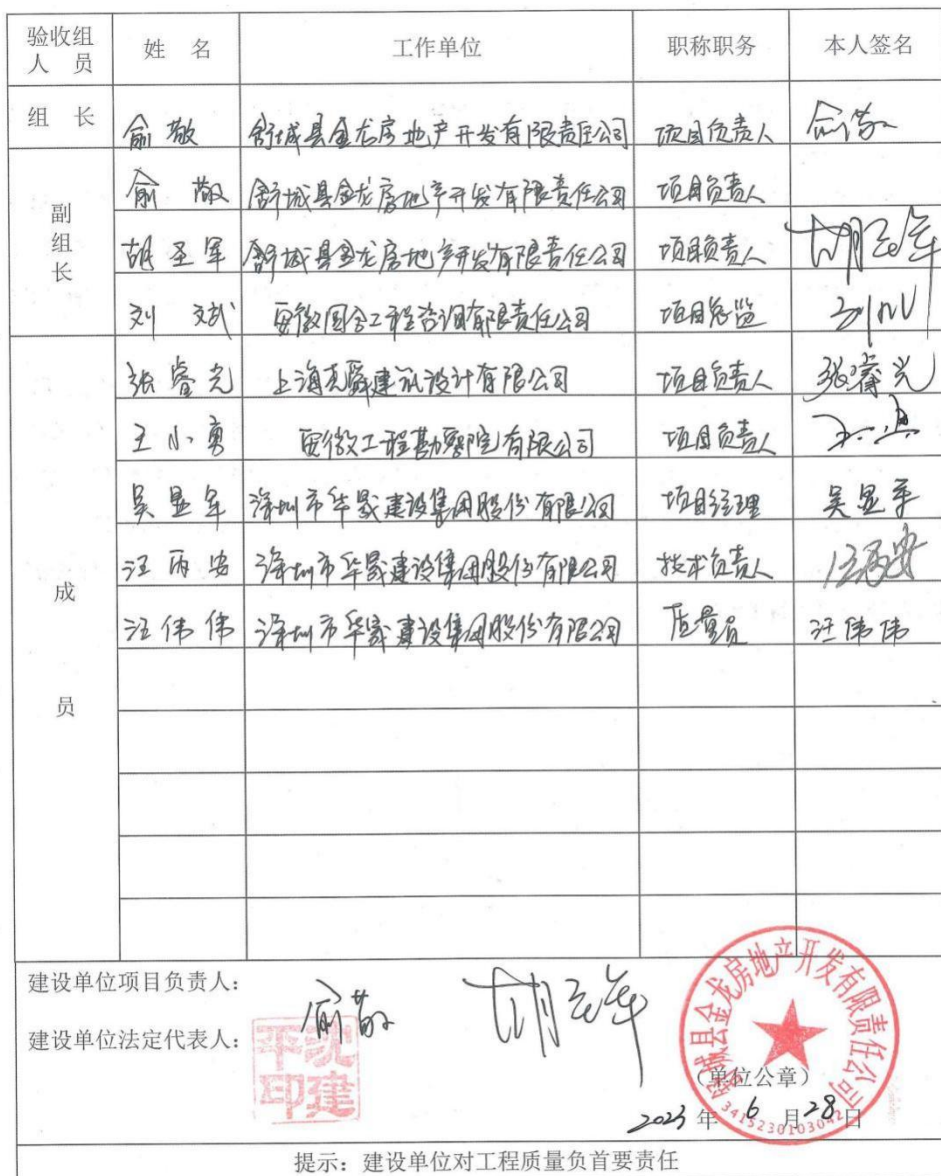 验收组人员 姓 名 工作单位 职称职务 本人签名
组 长 俞敬 舒城县金龙房地产开发有限责任公司 项目负责人 俞敬
副组长 俞敬 舒城县金龙房地产开发有限责任公司 项目负责人
胡圣军 舒城县金龙房地产开发有限责任公司 项目负责人 胡圣军
刘斌 安徽国合工程咨询有限责任公司 项目总监
成员 张睿光 上海 建筑设计有限公司 项目负责人 张睿光
王小勇 安徽工程勘察院有限公司 项目负责人
吴显军 深圳市华晟建设集团股份有限公司 项目经理 吴显军
汪丙安 深圳市华晟建设集团股份有限公司 技术负责人 汪丙安
汪伟伟 深圳市华晟建设集团股份有限公司 质量员 汪伟伟
建设单位项目负责人: 俞敬 胡圣军
建设单位法定代表人:
平 建印
舒城县金龙房地产开发有限责任公司
(单位公章)
3415230103042
2023 年 6 月 28 日
提示:建设单位对工程质量负首要责任